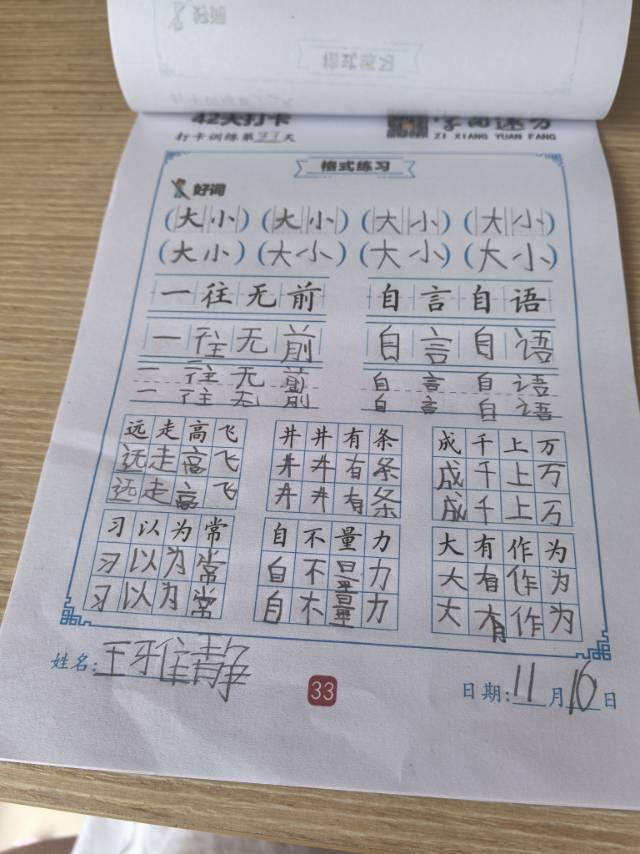 好词
格式练习
42天打卡
字如速力
ZI XIANG YUAN FANG
打卡训练第27天
格式练习
好词
(大小) (大小) (大小) (大小)
(大小) (大小) (大小) (大小)
一往无前 自言自语
一往无前 自言自语
一往无前 自言自语
一往无前 自言自语
远走高飞 井井有条 成千上万
远走高飞 井井有条 成千上万
远走高飞 井井有条 成千上万
习以为常 自不量力 大有作为
习以为常 自不量力 大有作为
习以为常 自不量力 大有作为
姓名:王
33
日期:11月16日